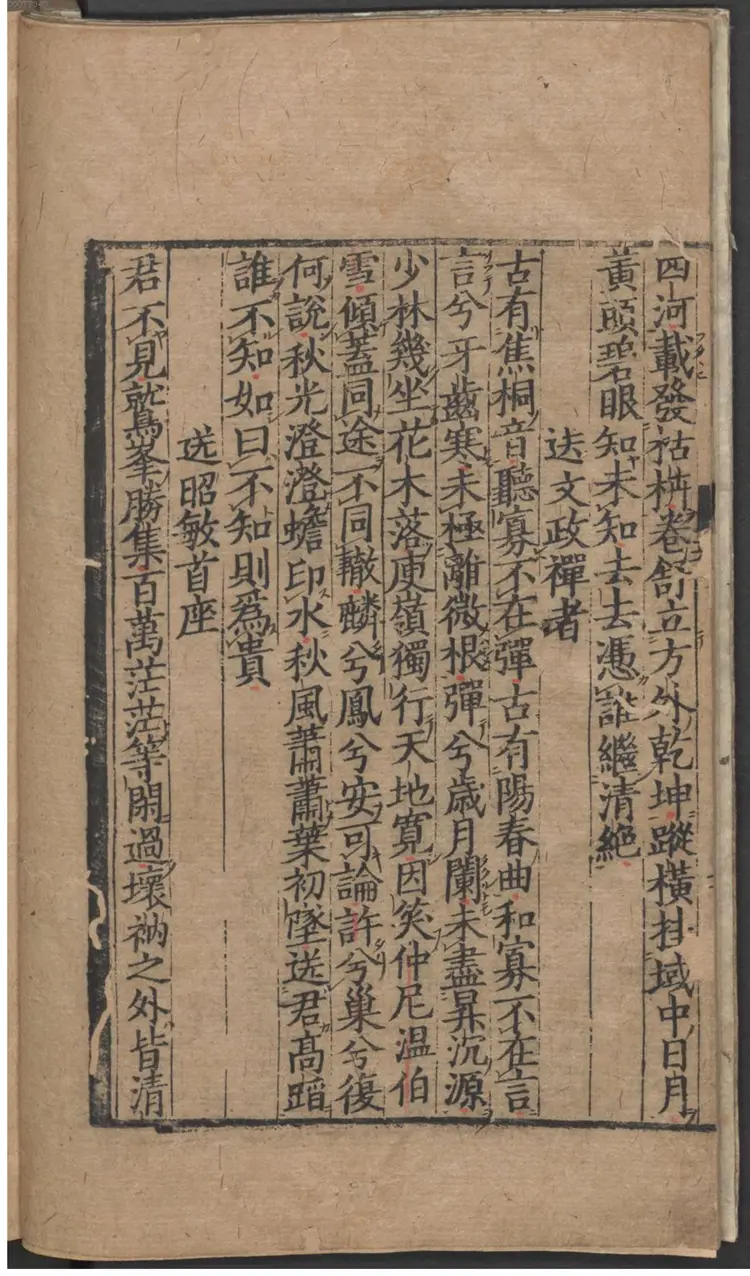 四河載發枯枿卷舒立方外乾坤蹤橫挂域中日月
黃頭碧眼知未知去去憑誰繼清絕
送文政禪者
古有焦桐音聽寡不在彈古有陽春曲和寡不在言
言兮牙齒寒未極離微根彈兮歲月闌未盡昇沉源
少林幾坐花木落庾嶺獨行天地寬因笑仲尼温伯
雪傾蓋同途不同轍麟兮鳳兮安可論許兮巢兮復
何說秋光澄澄蟾印水秋風蕭蕭葉初墜送君高蹈
誰不知如曰不知則爲貴
送昭敏首座
君不見鷲峯勝集百萬茫茫等閑過壞衲之外皆清